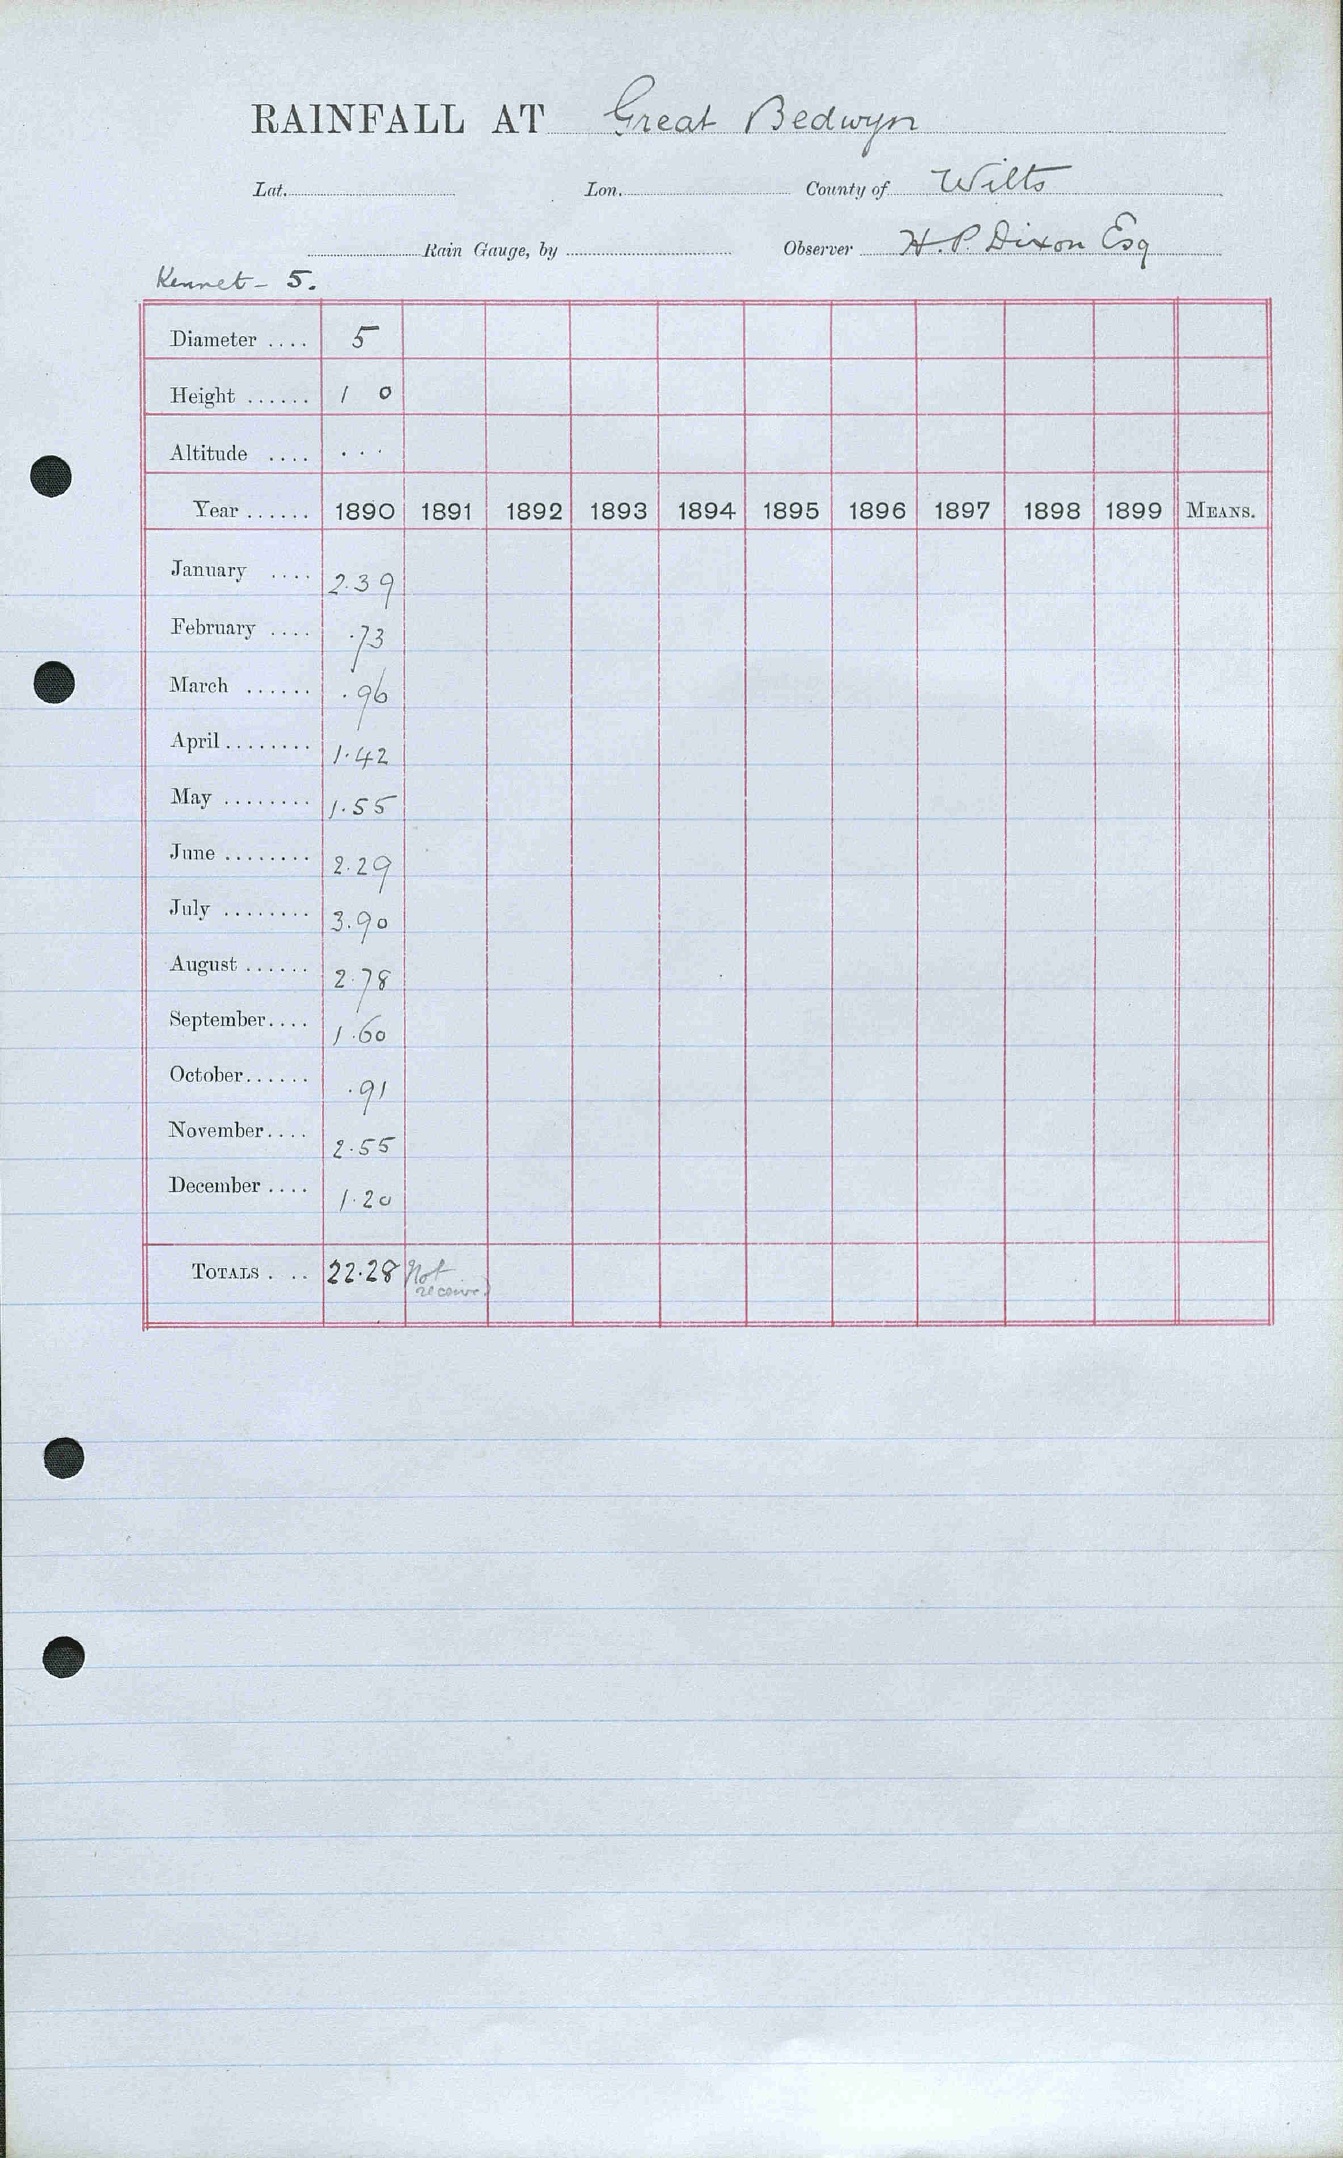 RAINFALL AT Great Bedwyn
Lat. Lon. County of Wilts
Rain Gauge, by Observer H. P. Dixon Esq
Kennet - 5.
Diameter .... 5
Height ...... 1 0
Altitude .... ...
Year ...... 1890 1891 1892 1893 1894 1895 1896 1897 1898 1899 MEANS.
January .... 2.39
February .... .73
March ...... .96
April ........ 1.42
May ........ 1.55
June ........ 2.29
July ........ 3.90
August ...... 2.78
September.... 1.60
October...... .91
November.... 2.55
December .... 1.20
TOTALS . .. 22.28 Not
received